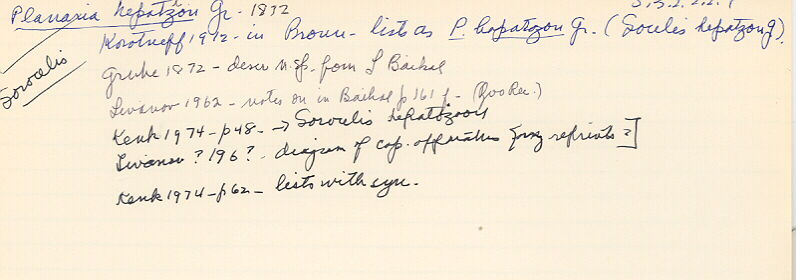 Planaria hepatizon Gr. - 1872
Korotneff 1912 - in Brown - lists as P. hepatizon Gr. (Sorocelis hepatizon G).
Sorocelis
Grube 1872 - descr n. sp. from L Baikal
Livanov 1962 - notes on in Baikal p 161 f. - (Zoo Rec.)
Kenk 1974 - p 48 - → Sorocelis hepatizon
Livanov ? 196? - diagram of cop. apparatus [my reprints ?]
Kenk 1974 - p 62 - lists with syn.